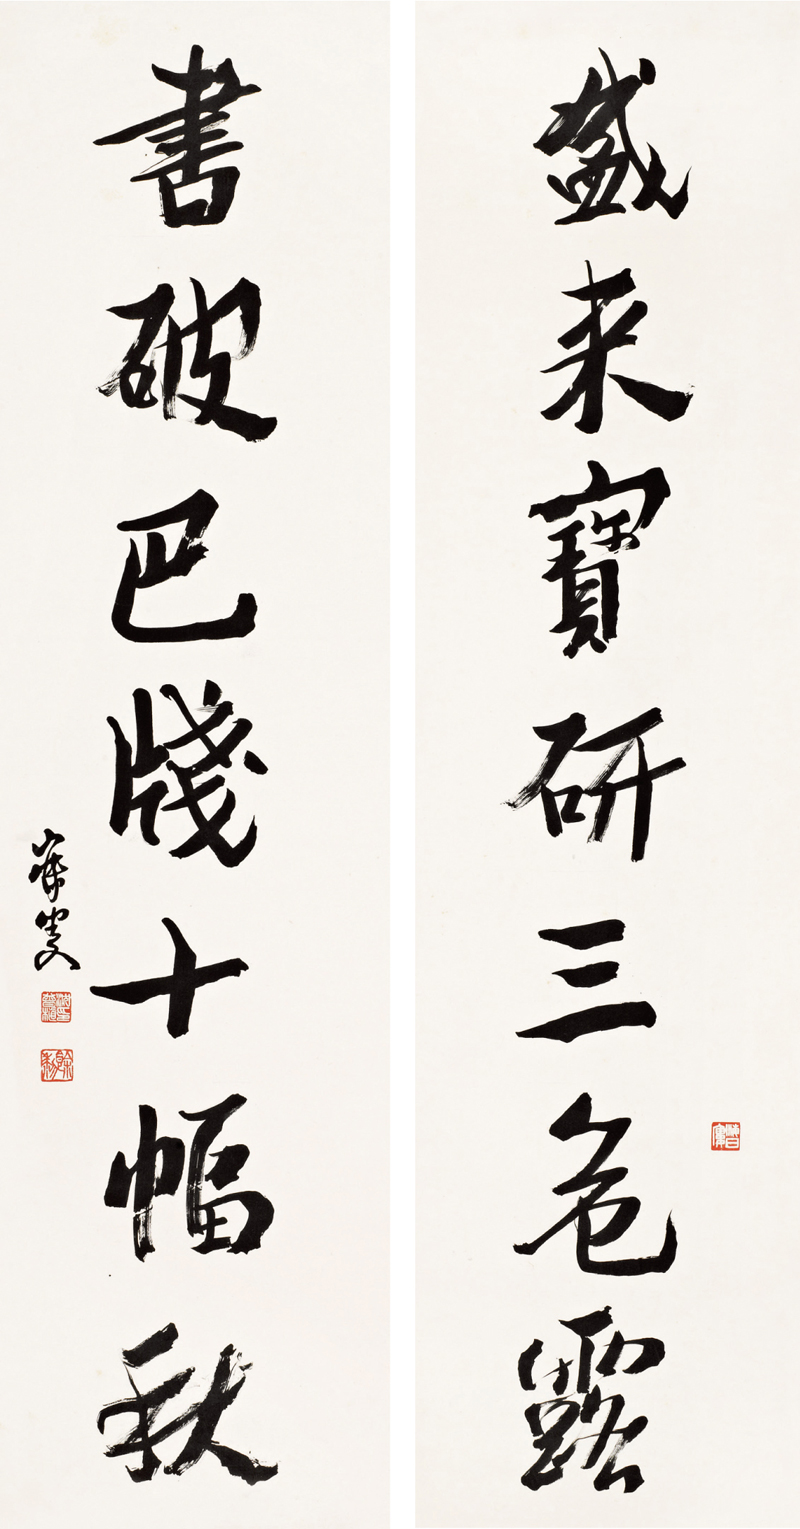 盛来寶研三危露
書破巴牋十幅秋
寐叟